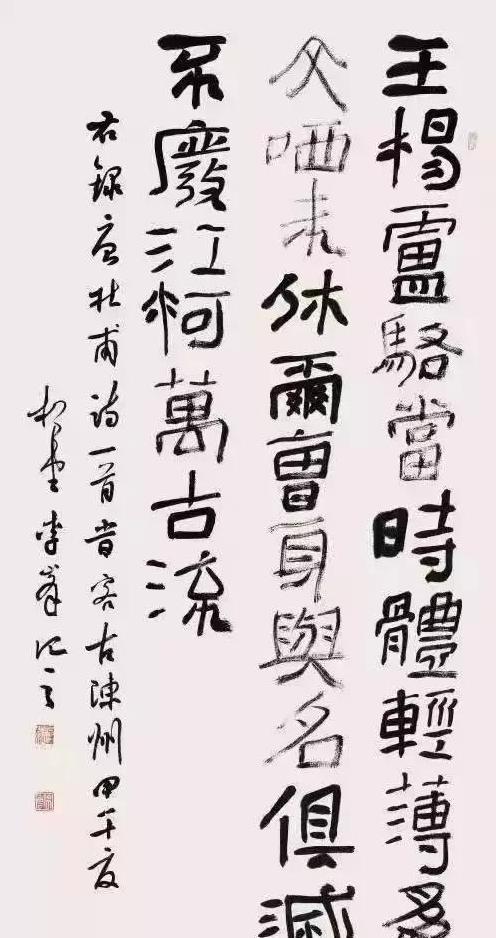 王楊盧駱當時體輕薄為
文哂未休爾曹身與名俱滅
不廢江河萬古流
右錄唐杜甫诗一首昔客古陳州甲午夏
李峯记